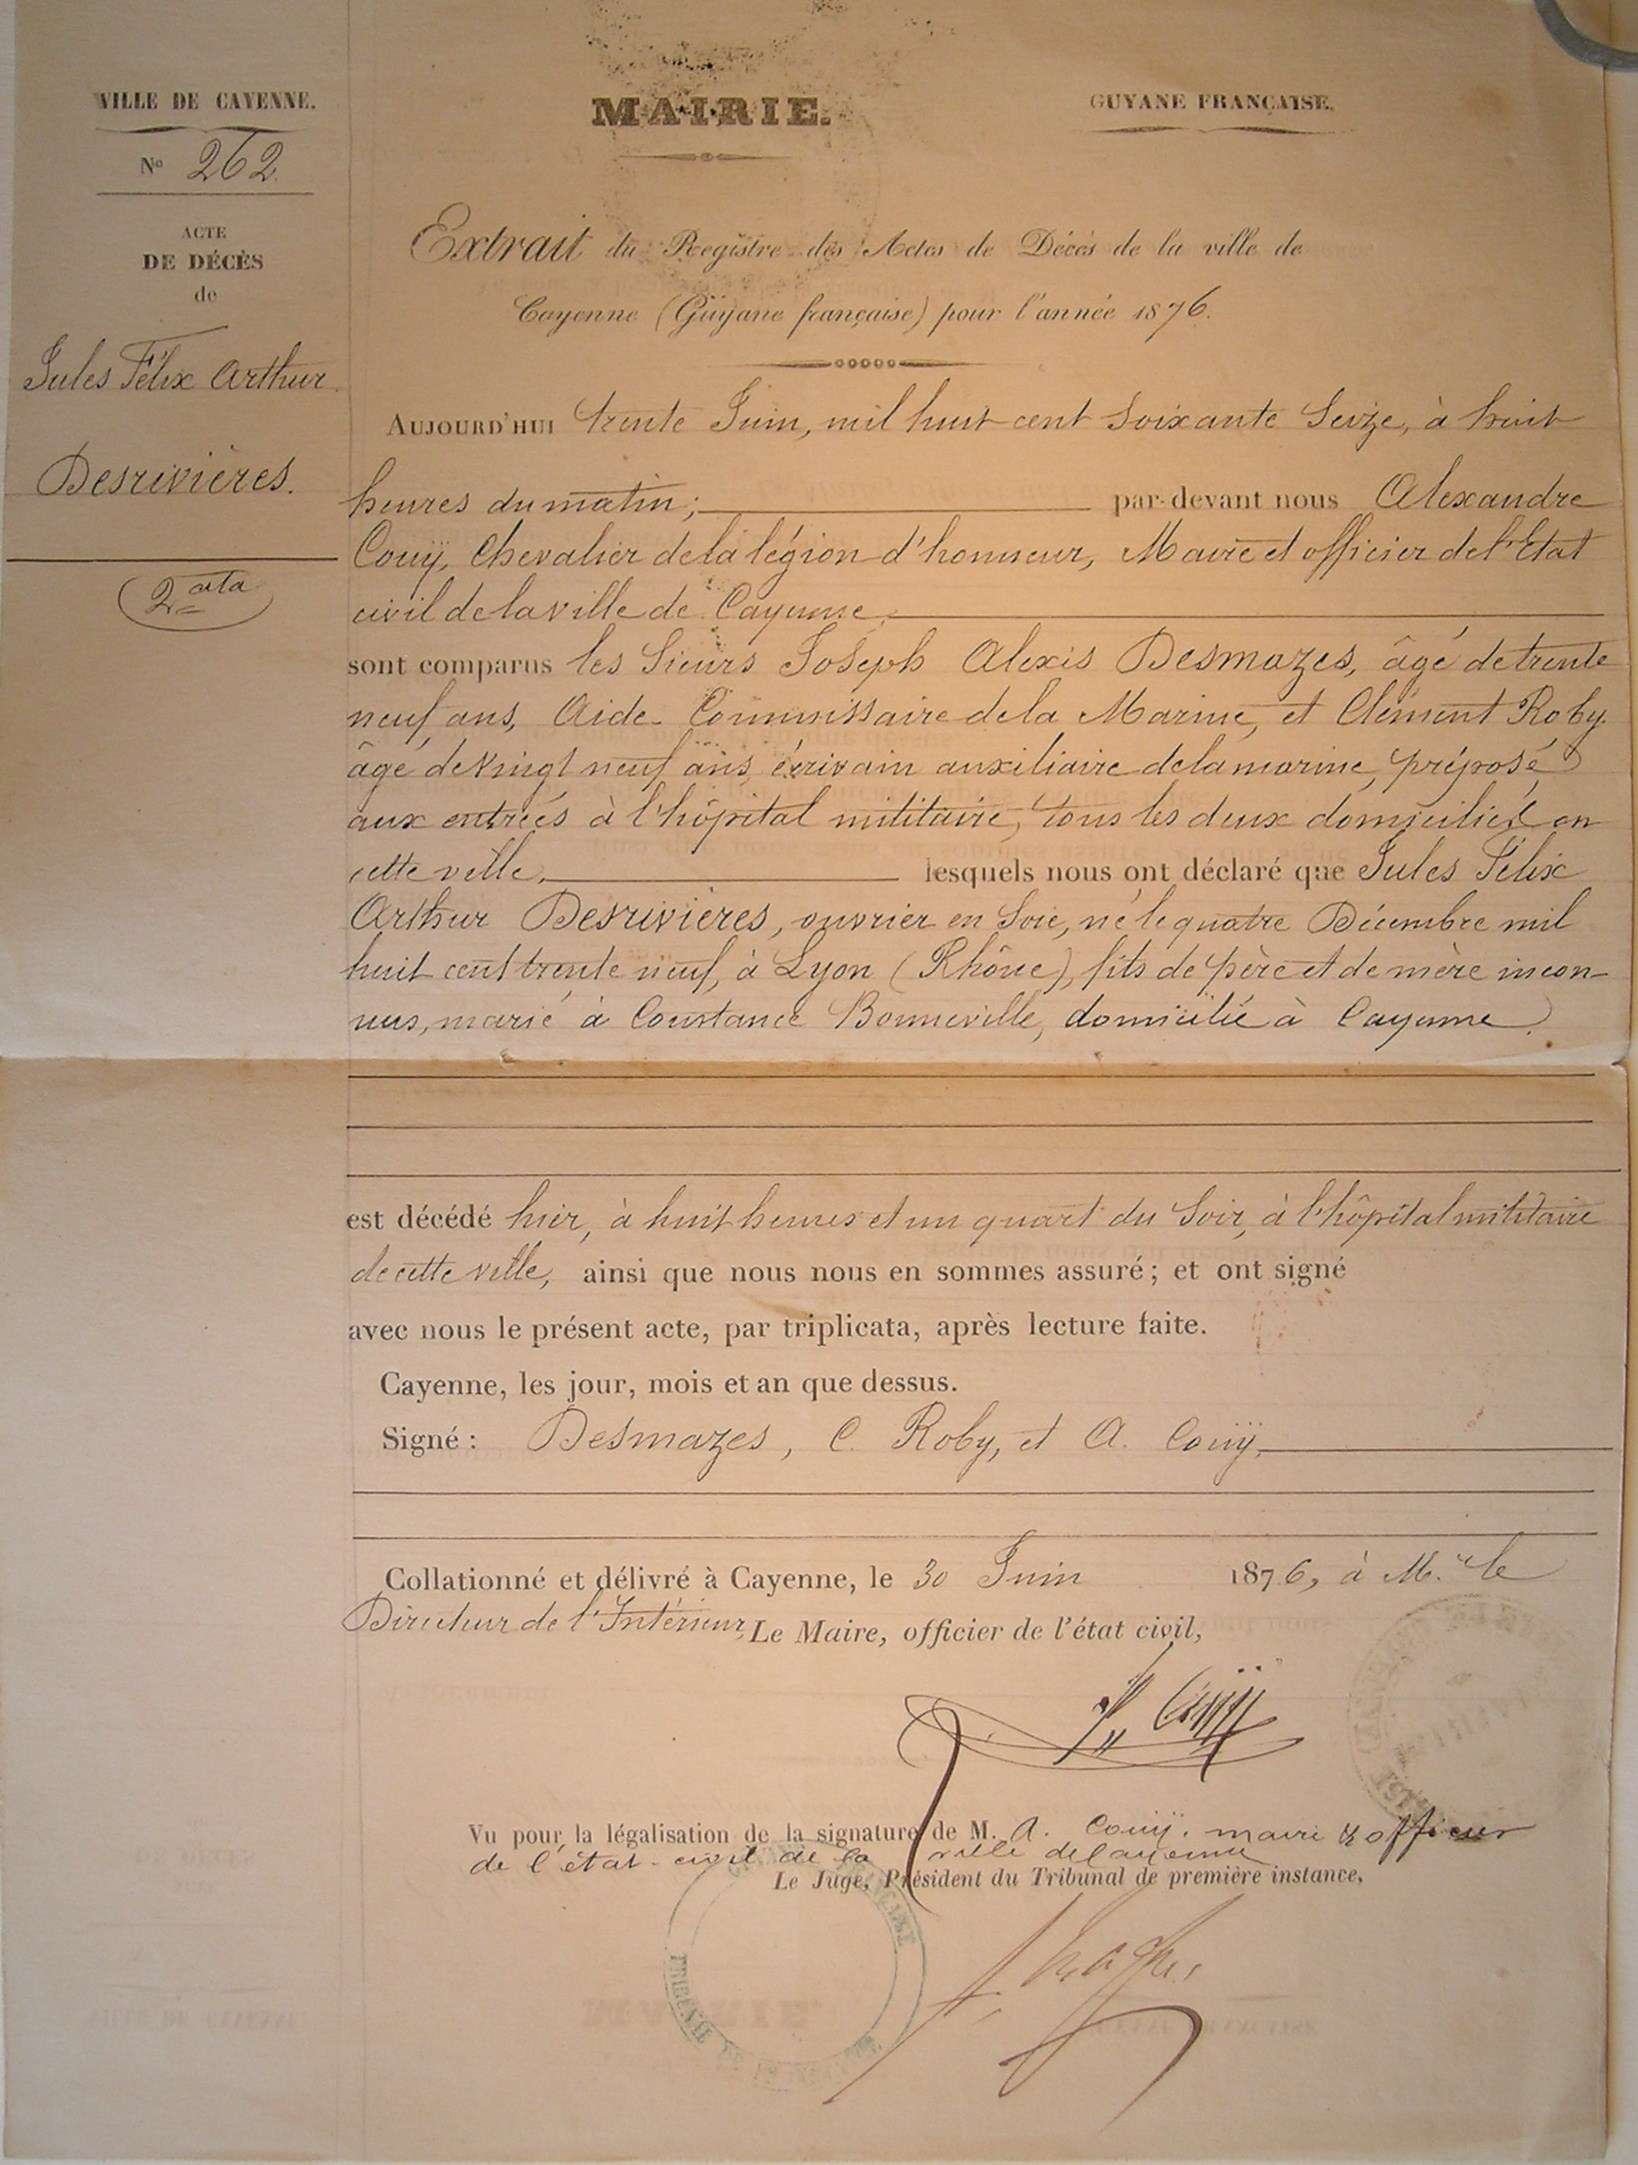 VILLE DE CAYENNE.
N° 262
ACTE
DE DÉCÈS
de
Jules Félix Arthur
Desrivières.
2ata
MAIRIE.
GUYANE FRANÇAISE.
Extrait du Registre des Actes de Décès de la ville de
Cayenne (Guyane française) pour l'année 1876.
AUJOURD'HUI trente Juin, mil huit cent soixante seize, à huit
heures du matin; par-devant nous Alexandre
Couÿ, Chevalier de la légion d'honneur, Maire et officier de l'Etat
civil de la ville de Cayenne,
sont comparus les Sieurs Joseph Alexis Desmazes, âgé de trente
neuf ans, Aide-Commissaire de la Marine, et Clément Roby
âgé de vingt neuf ans, écrivain auxiliaire de la marine, préposé
aux entrées à l'hôpital militaire, tous les deux domiciliés en
cette ville, lesquels nous ont déclaré que Jules Félix
Arthur Desrivières, ouvrier en soie, né le quatre Décembre mil
huit cent trente neuf, à Lyon (Rhône), fils de père et de mère incon-
nus, marié à Constance Bonneville, domicilié à Cayenne.
est décédé hier, à huit heures et un quart du soir, à l'hôpital militaire
de cette ville, ainsi que nous nous en sommes assuré; et ont signé
avec nous le présent acte, par triplicata, après lecture faite.
Cayenne, les jour, mois et an que dessus.
Signé: Desmazes, C. Roby, et A. Couÿ.
Collationné et délivré à Cayenne, le 30 Juin 1876, à Mr le
Directeur de l'Intérieur, Le Maire, officier de l'état civil,
A. Couÿ
Vu pour la légalisation de la signature de M. A. Couÿ, maire & officier
de l'état-civil de la ville de Cayenne
Le Juge, Président du Tribunal de première instance,